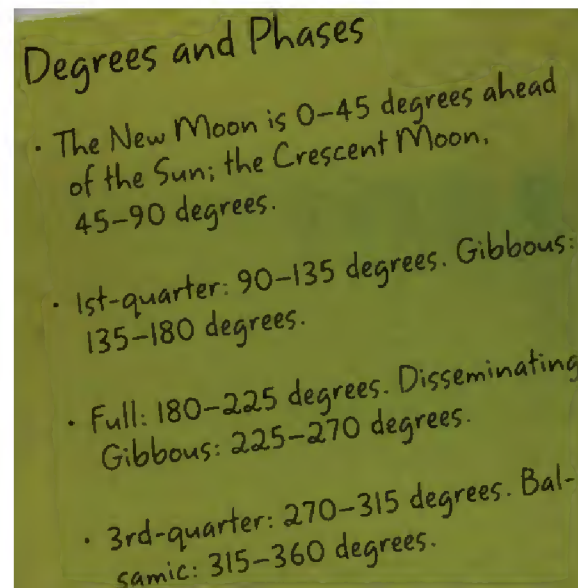 Degrees and Phases
· The New Moon is 0–45 degrees ahead
of the Sun; the Crescent Moon,
45–90 degrees.
· 1st-quarter: 90–135 degrees. Gibbous:
135–180 degrees.
· Full: 180–225 degrees. Disseminating
Gibbous: 225–270 degrees.
· 3rd-quarter: 270–315 degrees. Bal-
samic: 315–360 degrees.